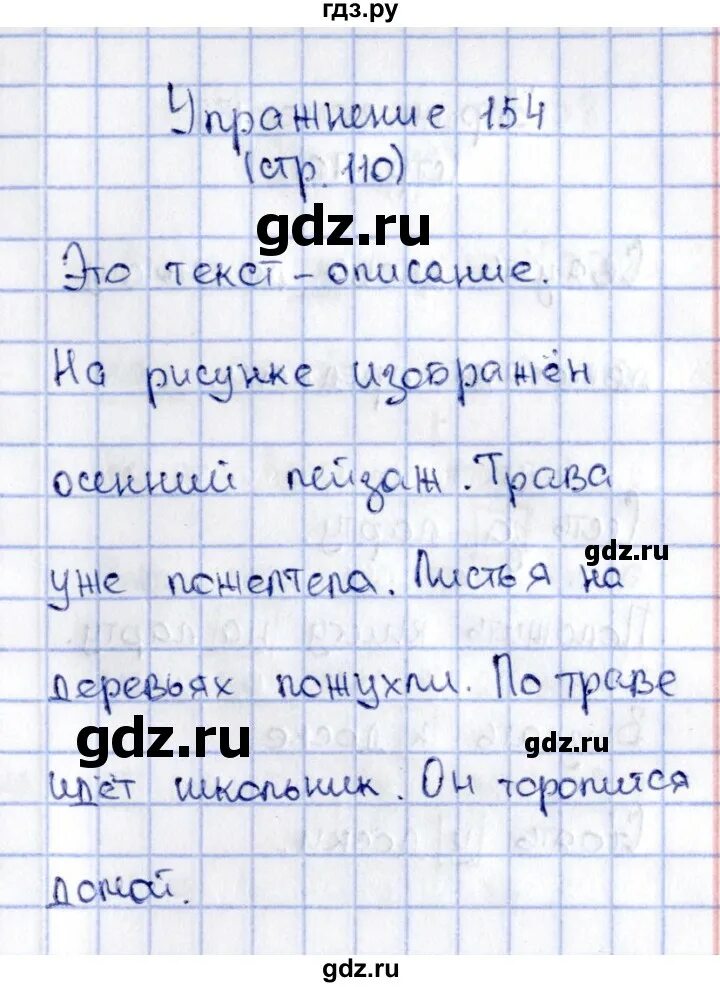 гдз.ру
Упражнение 154
(стр. 110)
gdz.ru
Это текст - описание.
На рисунке изображён
осенний пейзаж. Трава
gdz.ru
уже пожелтела. Листья на
деревьях пожухли. По траве
gdz.ru
gdz.ru
идёт школьник. Он торопится
домой.
gdz.ru